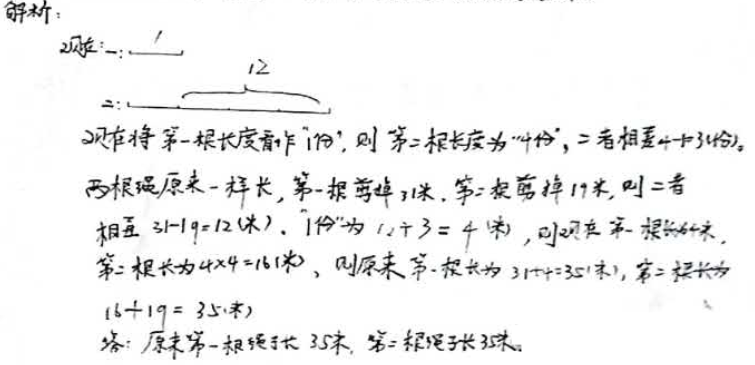 解析:
现在:一: 1
12
二:
现在将第一根长度看作"1份",则第二根长度为"4份",二者相差4-1=3(份)。
两根绳原来一样长,第一根剪掉31米,第二根剪掉19米,则二者
相差 31-19=12(米)、"1份"为 12÷3=4(米),则现在第一根长4米,
第二根长为4×4=16(米)、则原来第一根长为 31+4=35(米),第二根长为
16+19=35(米)
答:原来第一根绳子长35米,第二根绳子长35米。